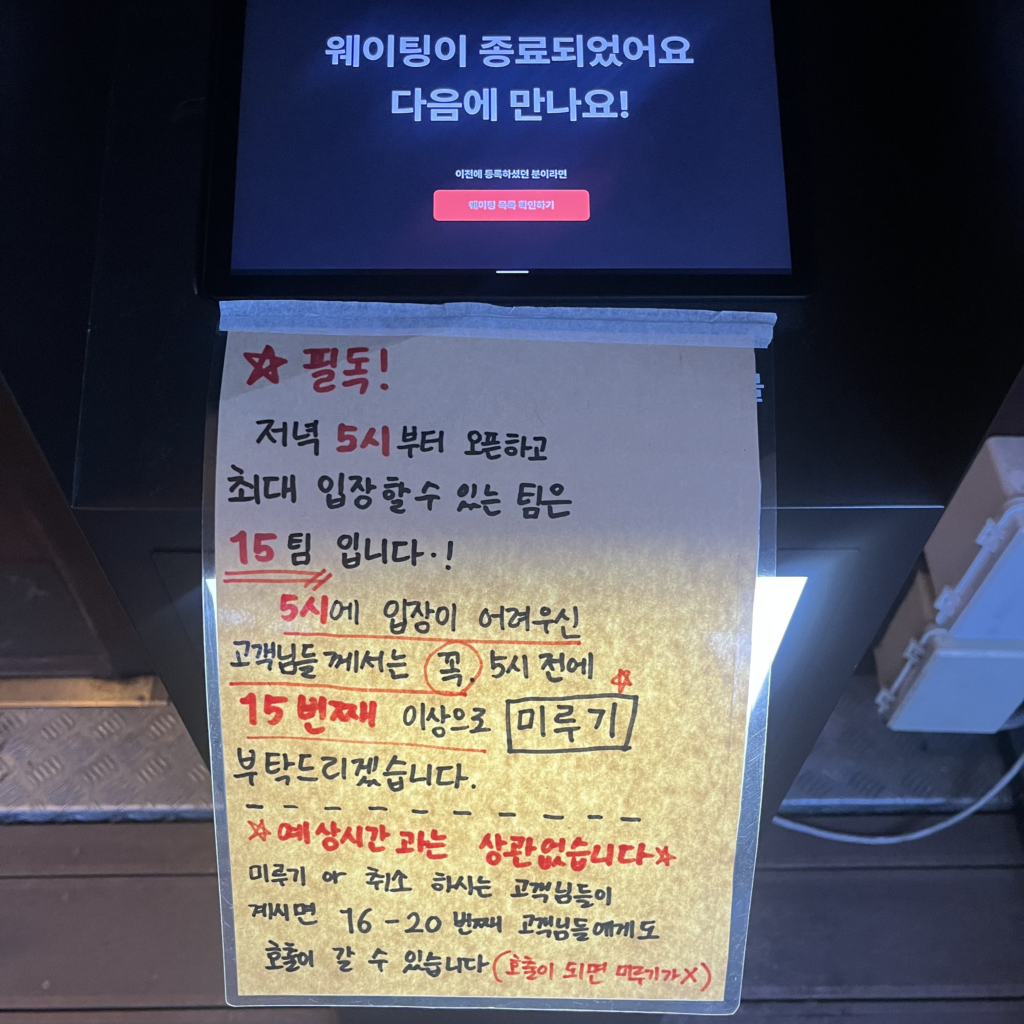 웨이팅이 종료되었어요
다음에 만나요!
이전에 등록하셨던 분이라면
웨이팅 목록 확인하기
☆ 필독!
저녁 5시부터 오픈하고
최대 입장할 수 있는 팀은
15팀 입니다.!
5시에 입장이 어려우신
고객님들께서는 꼭. 5시 전에
15번째 이상으로 미루기
부탁드리겠습니다.
☆예상시간과는 상관없습니다☆
미루기 or 취소 하시는 고객님들이
계시면 16-20번째 고객님들에게도
호출이 갈 수 있습니다(호출이 되면 미루기가X)